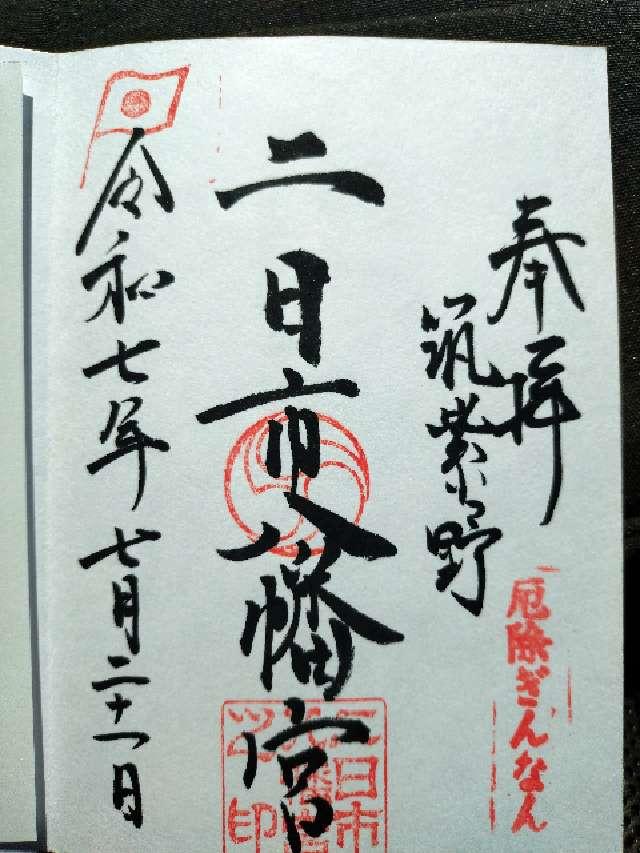 奉拝
筑紫野
厄除ぎんなん
二日市八幡宮
二日市八幡宮之印
令和七年七月二十一日